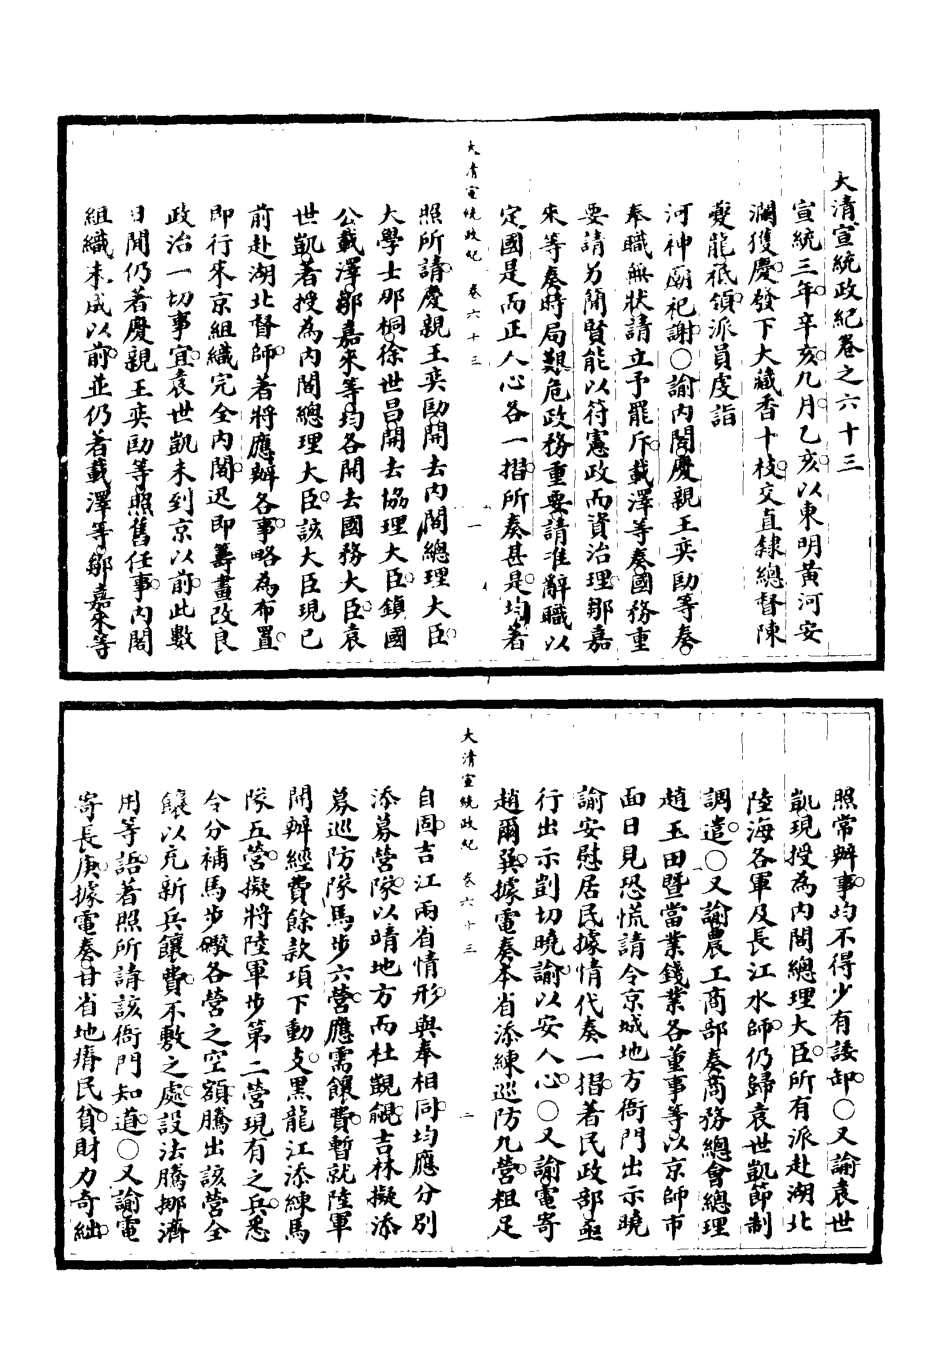 大清宣統政紀卷之六十三
宣統三年辛亥九月乙亥以東明黃河安
瀾獲慶發下大藏香十枝交直隸總督陳
夔龍祗領派員虔詣
河神廟祀謝○諭內閣慶親王奕劻等奏
奉職無狀請立予罷斥載澤等奏國務重
要請另簡賢能以符憲政而資治理鄒嘉
來等奏時局艱危政務重要請准辭職以
定國是而正人心各一摺所奏甚是均著
大清宣統政紀 卷六十三 一
照所請慶親王奕劻開去內閣總理大臣
大學士那桐徐世昌開去協理大臣鎮國
公載澤鄒嘉來等均各開去國務大臣袁
世凱著授為內閣總理大臣該大臣現已
前赴湖北督師著將應辦各事略為布置
即行來京組織完全內閣迅即籌畫改良
政治一切事宜袁世凱未到京以前此數
日間仍著慶親王奕劻等照舊任事內閣
組織未成以前並仍著載澤等鄒嘉來等
照常辦事均不得少有諉卸○又諭袁世
凱現授為內閣總理大臣所有派赴湖北
陸海各軍及長江水師仍歸袁世凱節制
調遣○又諭農工商部奏商務總會總理
趙玉田暨當業錢業各董事等以京師市
面日見恐慌請令京城地方衙門出示曉
諭安慰居民據情代奏一摺著民政部亟
行出示剴切曉諭以安人心○又諭電寄
趙爾巽據電奏本省添練巡防九營粗足
大清宣統政紀 卷六十三 二
自固吉江兩省情形與奉相同均應分別
添募營隊以靖地方而杜覬覦吉林擬添
募巡防隊馬步六營應需饟費暫就陸軍
開辦經費餘款項下動支黑龍江添練馬
隊五營擬將陸軍步第二營現有之兵悉
令分補馬步礮各營之空額騰出該營全
饟以充新兵饟費不敷之處設法騰挪濟
用等語著照所請該衙門知道○又諭電
寄長庚據電奏甘省地瘠民貧財力奇絀